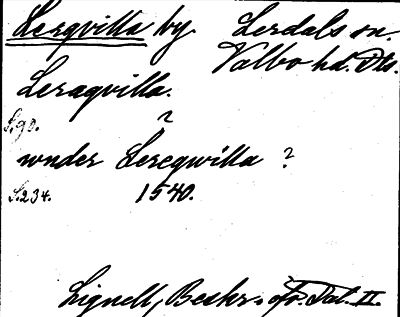 Lerqvilla by Lerdals sn.
Valbo hd. Dls.
Leraqvilla.
S. 90. ?
under Lereqwilla ?
S. 234. 1540.
Lignell, Beskr. öfv. Dal. II.